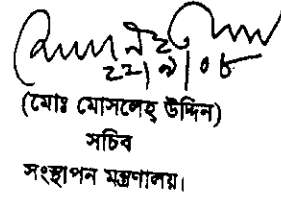 ২২/৯/০৮
(মোঃ মোসলেহ উদ্দিন)
সচিব
সংস্থাপন মন্ত্রণালয়।